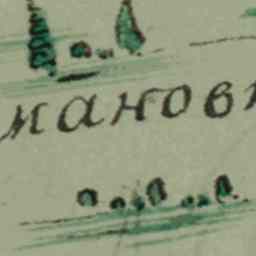 мановн